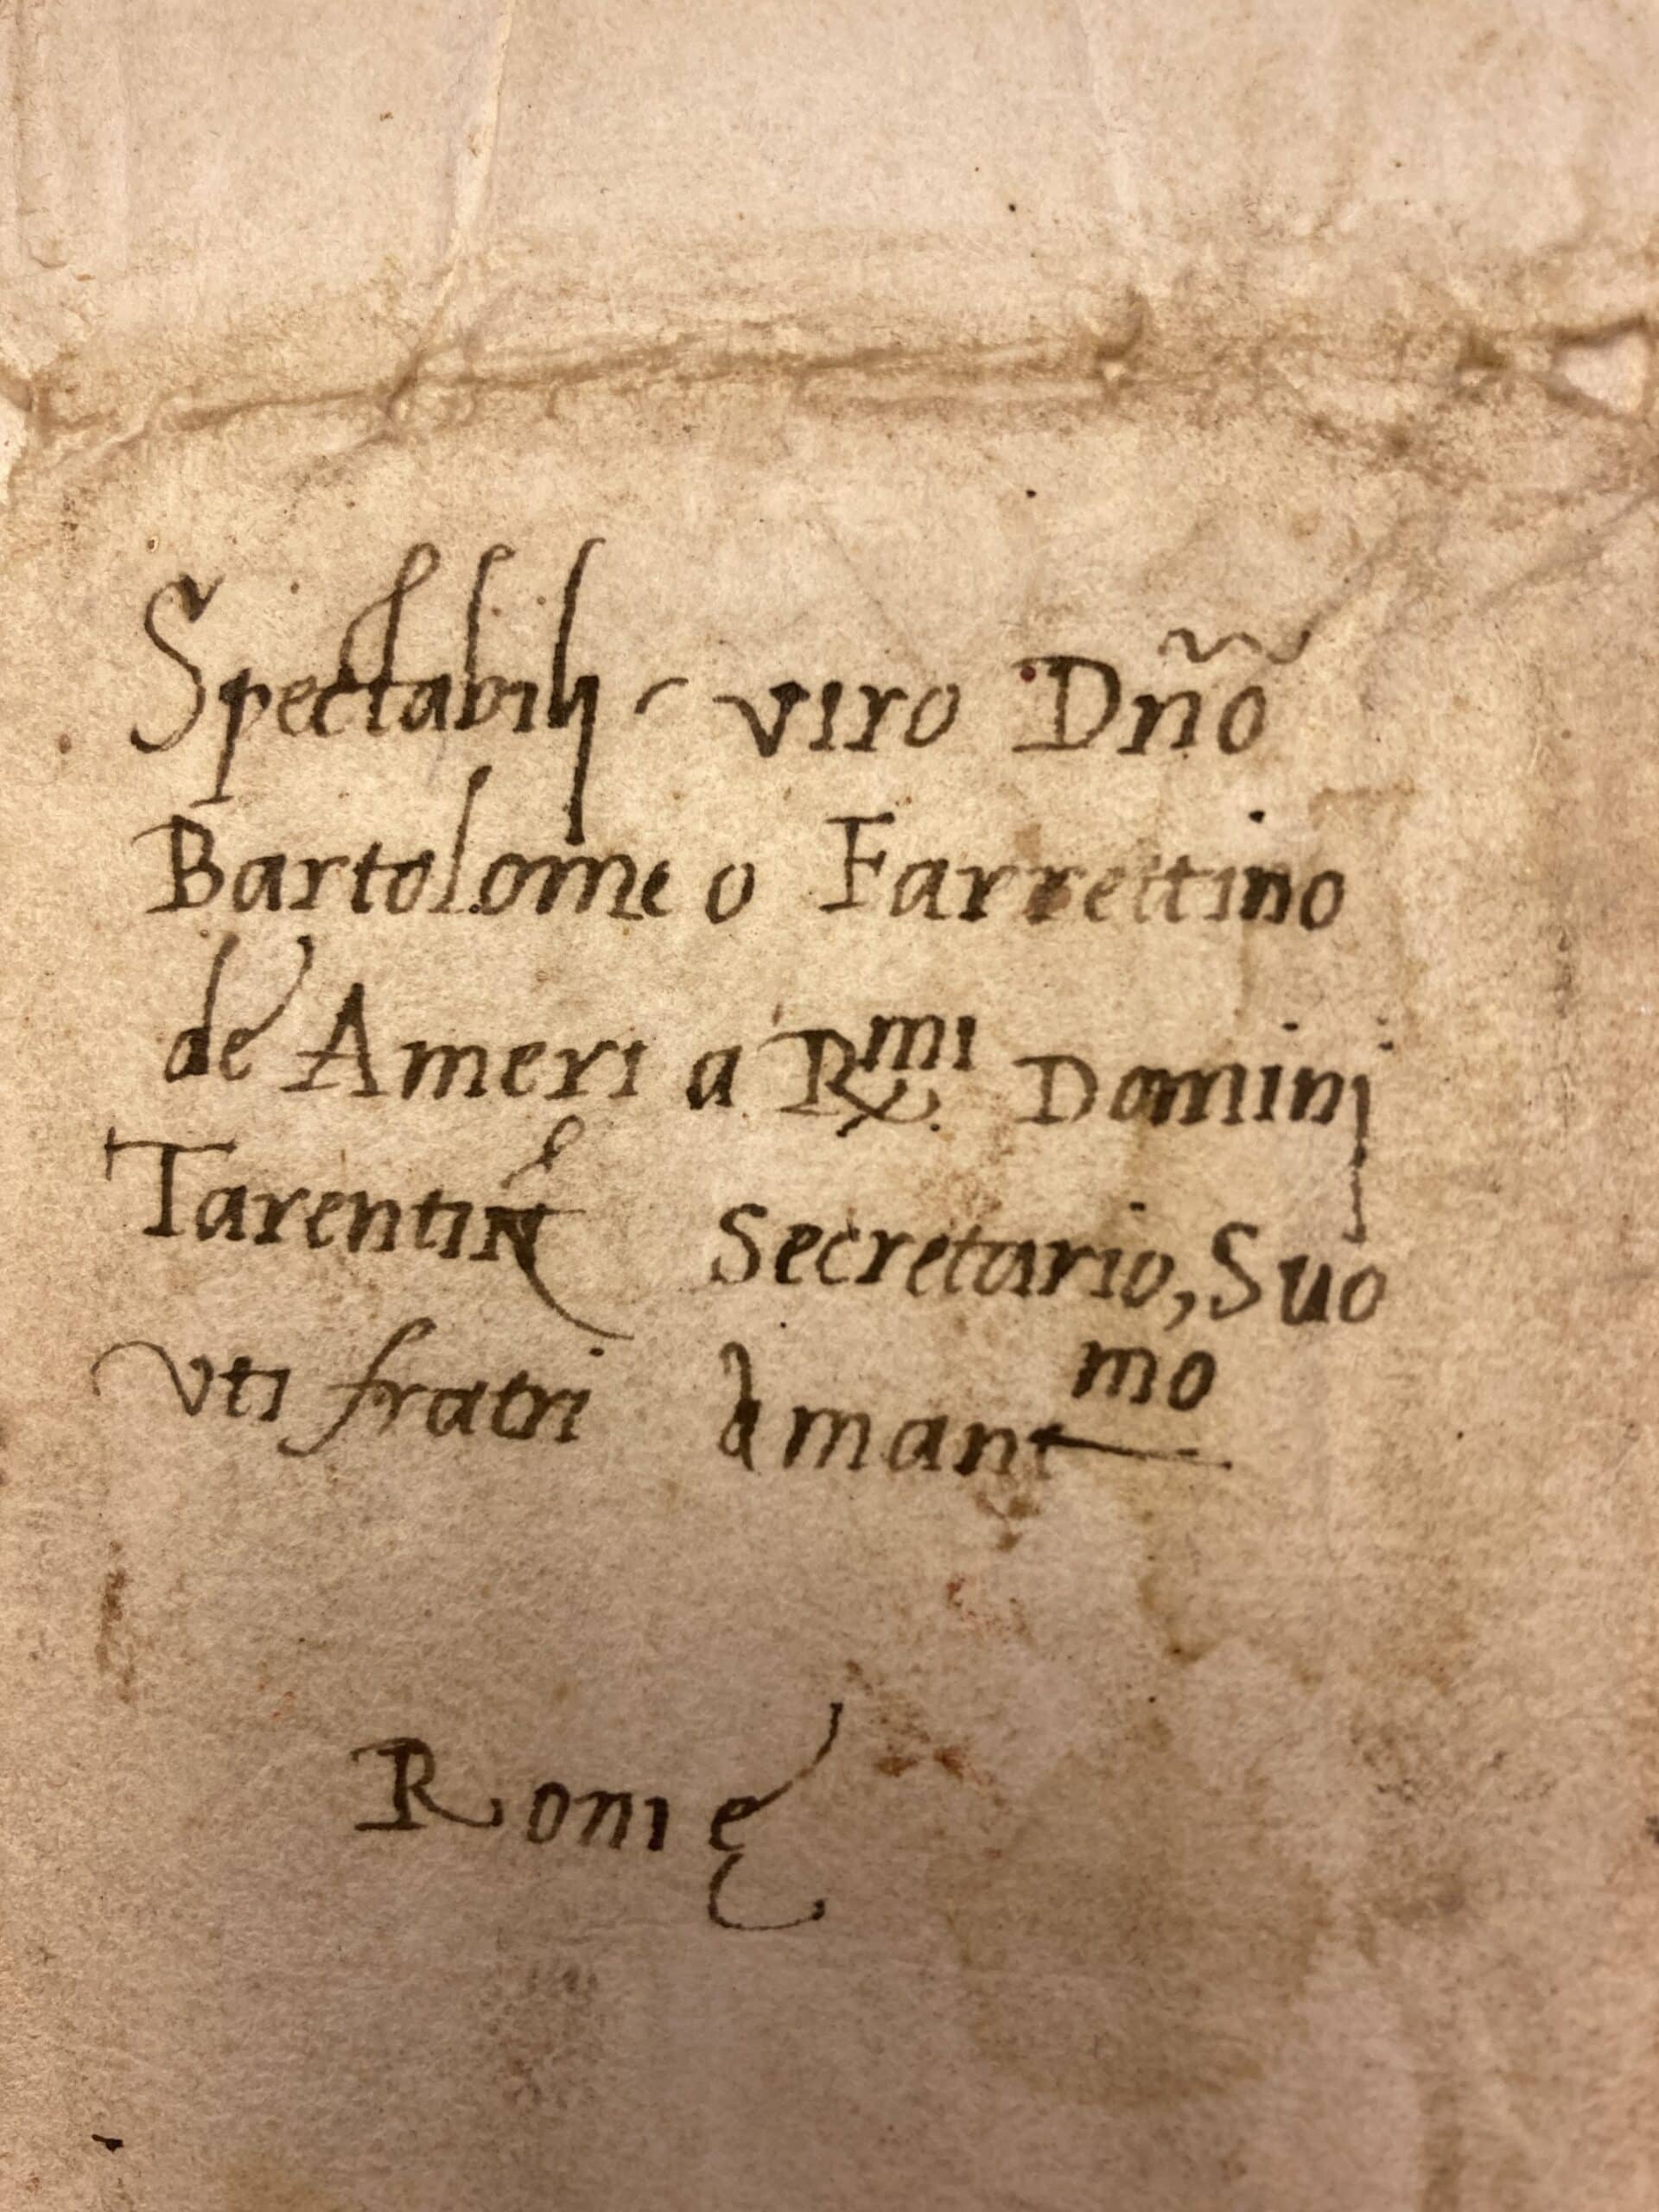 Spectabilj viro Dño
Bartolomeo Farrettino
de Ameria R^mi Dominj
Tarentin Secretario, Suo
vti fratri Amant^mo
Romę